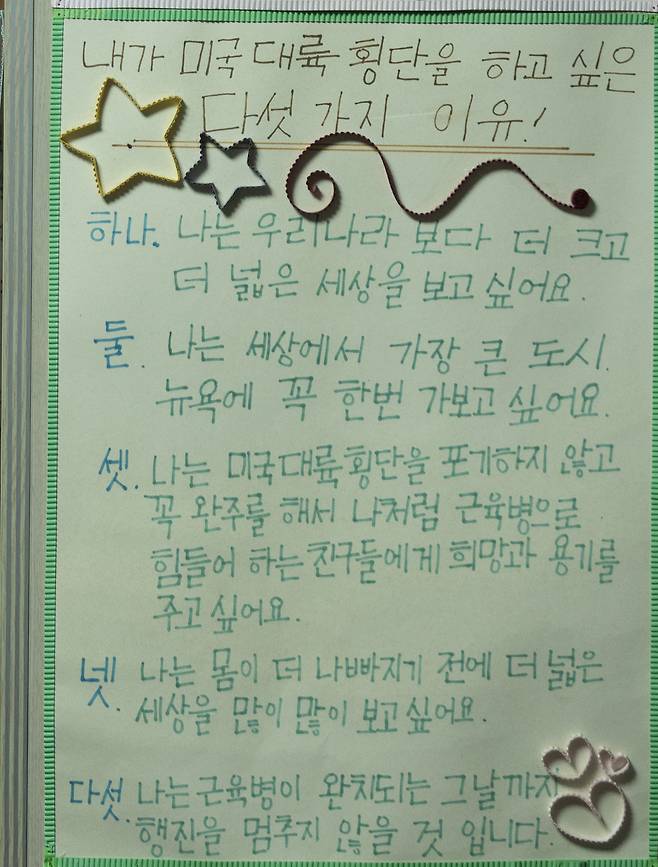 내가 미국 대륙 횡단을 하고 싶은
다섯 가지 이유!
하나. 나는 우리나라 보다 더 크고
더 넓은 세상을 보고 싶어요.
둘. 나는 세상에서 가장 큰 도시.
뉴욕에 꼭 한번 가보고 싶어요.
셋. 나는 미국 대륙 횡단을 포기하지 않고
꼭 완주를 해서 나처럼 근육병으로
힘들어 하는 친구들에게 희망과 용기를
주고 싶어요.
넷. 나는 몸이 더 나빠지기 전에 더 넓은
세상을 많이 많이 보고 싶어요.
다섯. 나는 근육병이 완치되는 그날까지
행진을 멈추지 않을 것 입니다.